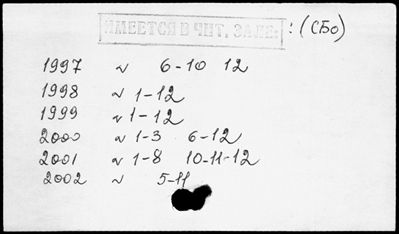 ИМЕЕТСЯ В ЧИТ. ЗАЛЕ: : (СБО)
1997 N 6-10 12
1998 N 1-12
1999 N 1-12
2000 N 1-3 6-12
2001 N 1-8 10-11-12
2002 N 5-11